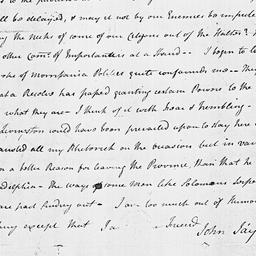 to the
ll be delayed, & may it not by our Enemies be impute
ing the necks of some of our Citizens out of the Halter?
other Comrs. of Importance is at a Stand — I begin to
of mornpania Politics quite confounds me — The
that a Resolve has passed granting certain Powers to the
what they are — I think of it with Fear & Trembling —
Livingston could have been prevailed upon to stay here
austed all my Rhetorick on the occasion but in vain
on a better Reason for leaving the Province, than that he
adelphia — The ways of some men like Solomons
are past finding out — I am too much out of Humour
any except that I am Friend
John Jay